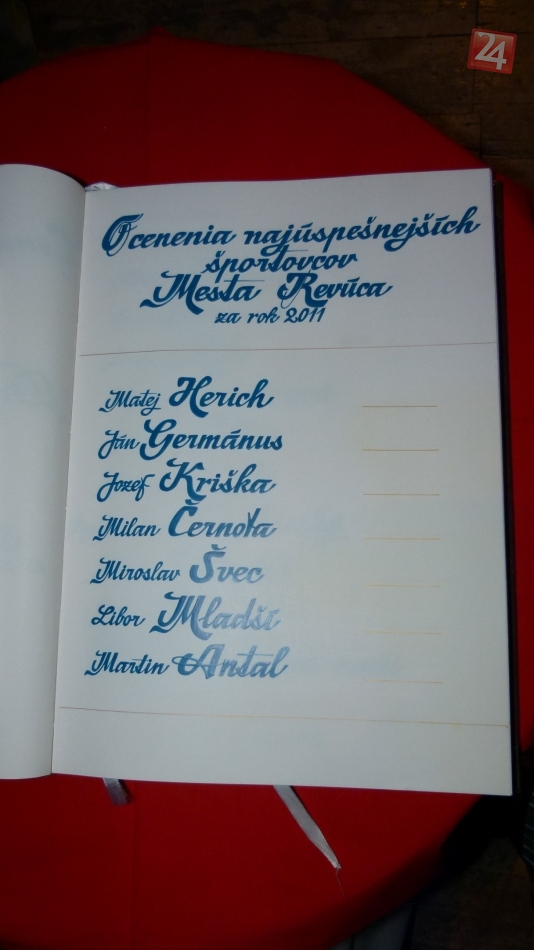 24
Ocenenia najúspešnejších
športovcov
Mesta Revúca
za rok 2011
Matej Herich
Ján Germánus
Jozef Kriška
Milan Černota
Miroslav Švec
Libor Mladší
Martin Antal